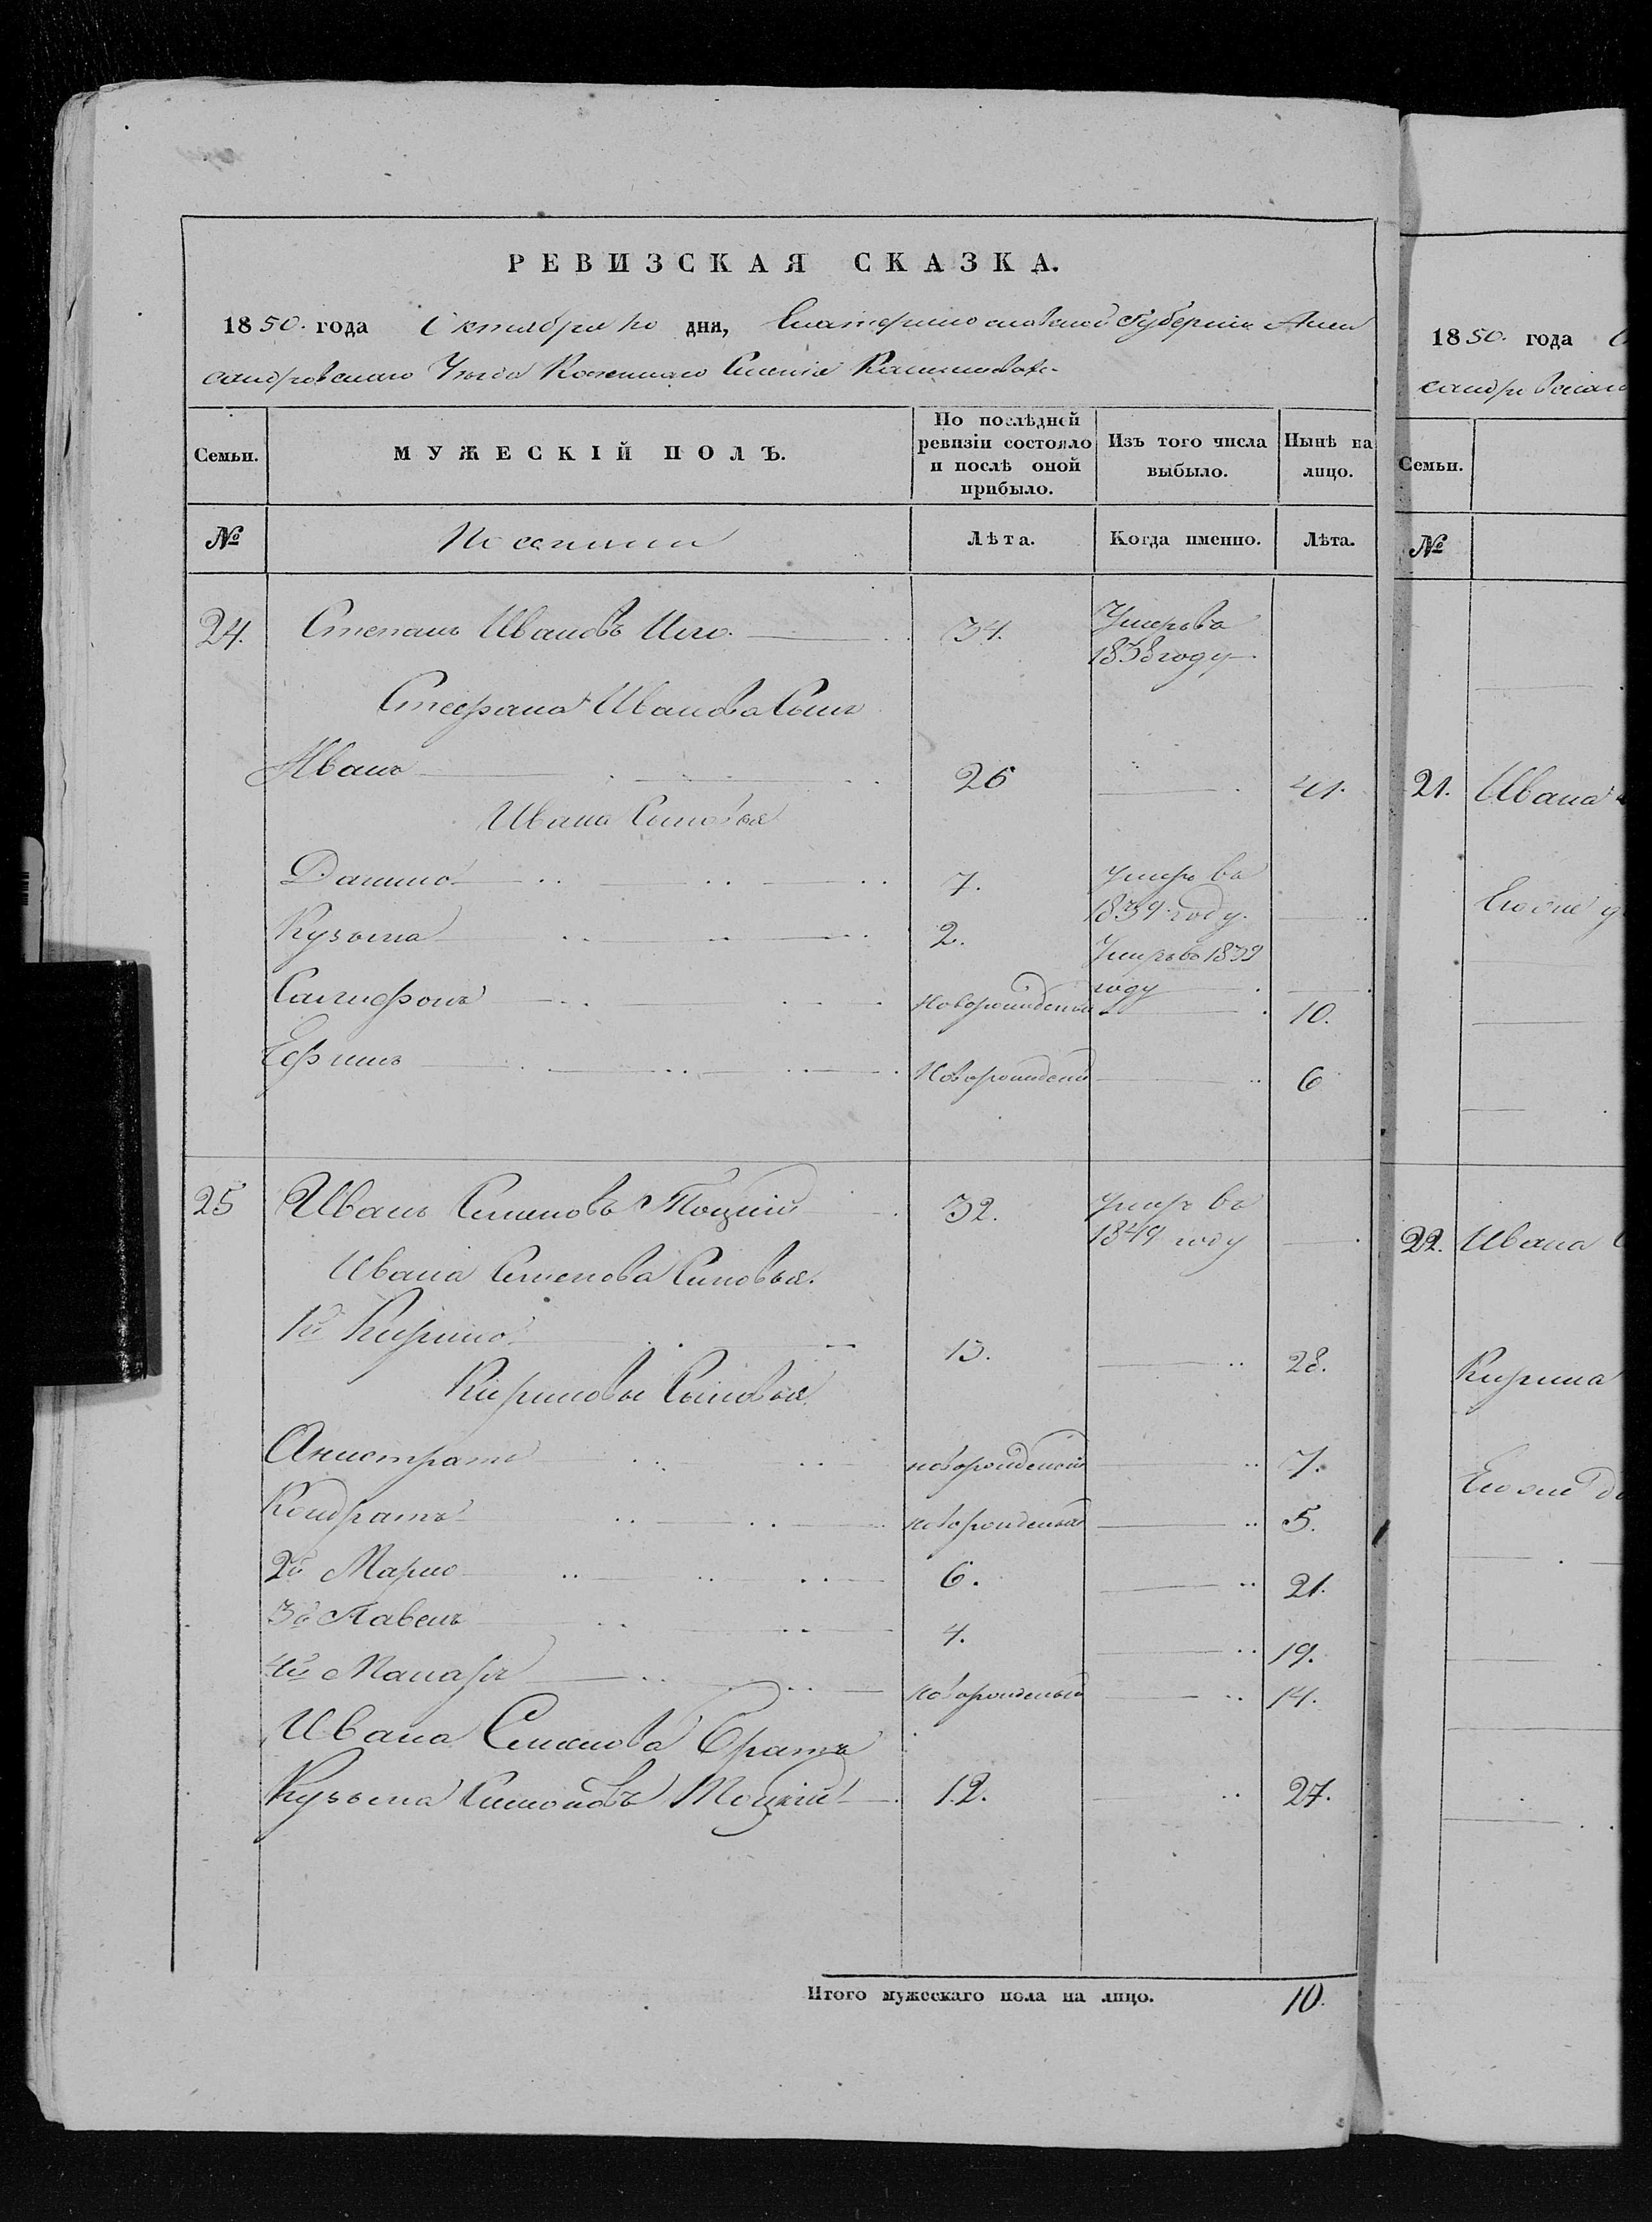 РЕВИЗСКАЯ СКАЗКА.
1850. года Октября 10 дня, Екатеринославской Губернiи Алек
сандровскаго Уезда Казеннаго Селенiя
Семьи.
МУЖЕСКIЙ ПОЛЪ.
По послѣдней ревизiи состояло и послѣ оной прибыло.
Изъ того числа выбыло.
Нынѣ на лицо.
№
Лѣта.
Когда именно.
Лѣта.
24. Степанъ Ивановъ 34. Умеръ въ
1838 году
Стефана Иванова Сынъ
Иванъ 26 41.
Ивана Сыновья
Данило 7. умеръ въ
1839 году.
Кузьма 2. Умеръ въ 1839
году
новорожденный 10.
Ефимъ Новорожденный 6
25 Иванъ Семеновъ Тоцкiй 32. умеръ въ
1849 году
Ивана Семенова Сыновья.
1й Кирило 13. 28.
Кириловы Сыновья
новорожденный 7.
Кондратъ новорожденный 5.
2й Марко 6. 21.
3й Павелъ 4. 19.
4й Макаръ новорожденный 14.
Ивана Семенова Братъ
Кузьма Семеновъ Тоцкiй 12. 27.
Итого мужескаго пола на лицо. 10.
1850. года
Семьи.
№
21. Ивана
22. Ивана
Кирила